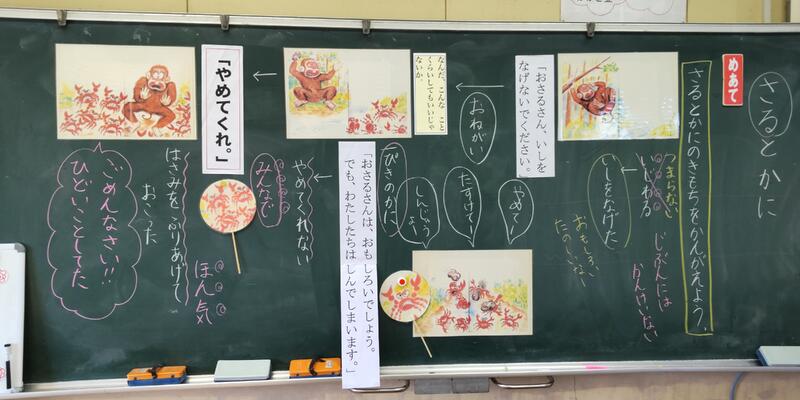 さるとかに
めあて
さるとかにのきもちをかんがえよう。
つまらない
いじわる
じぶんには
かんけいない
いしをなげた
おもしろい
たのしい
「おさるさん、いしを
なげないでください。
やめてー
たすけてー
おねがい
しんじゃう
よー
なんだ、こんな こと
くらいしてもいいじゃ
ないか。
「おさるさんは、おもしろいでしょう。
でも、わたしたちは しんでしまいます。」
ぴきのかに
やめてくれない
みんなで
「やめてくれ。」
はさみを ふりあげて
おこった
ほん気
ごめんなさい!!
ひどいことしてた